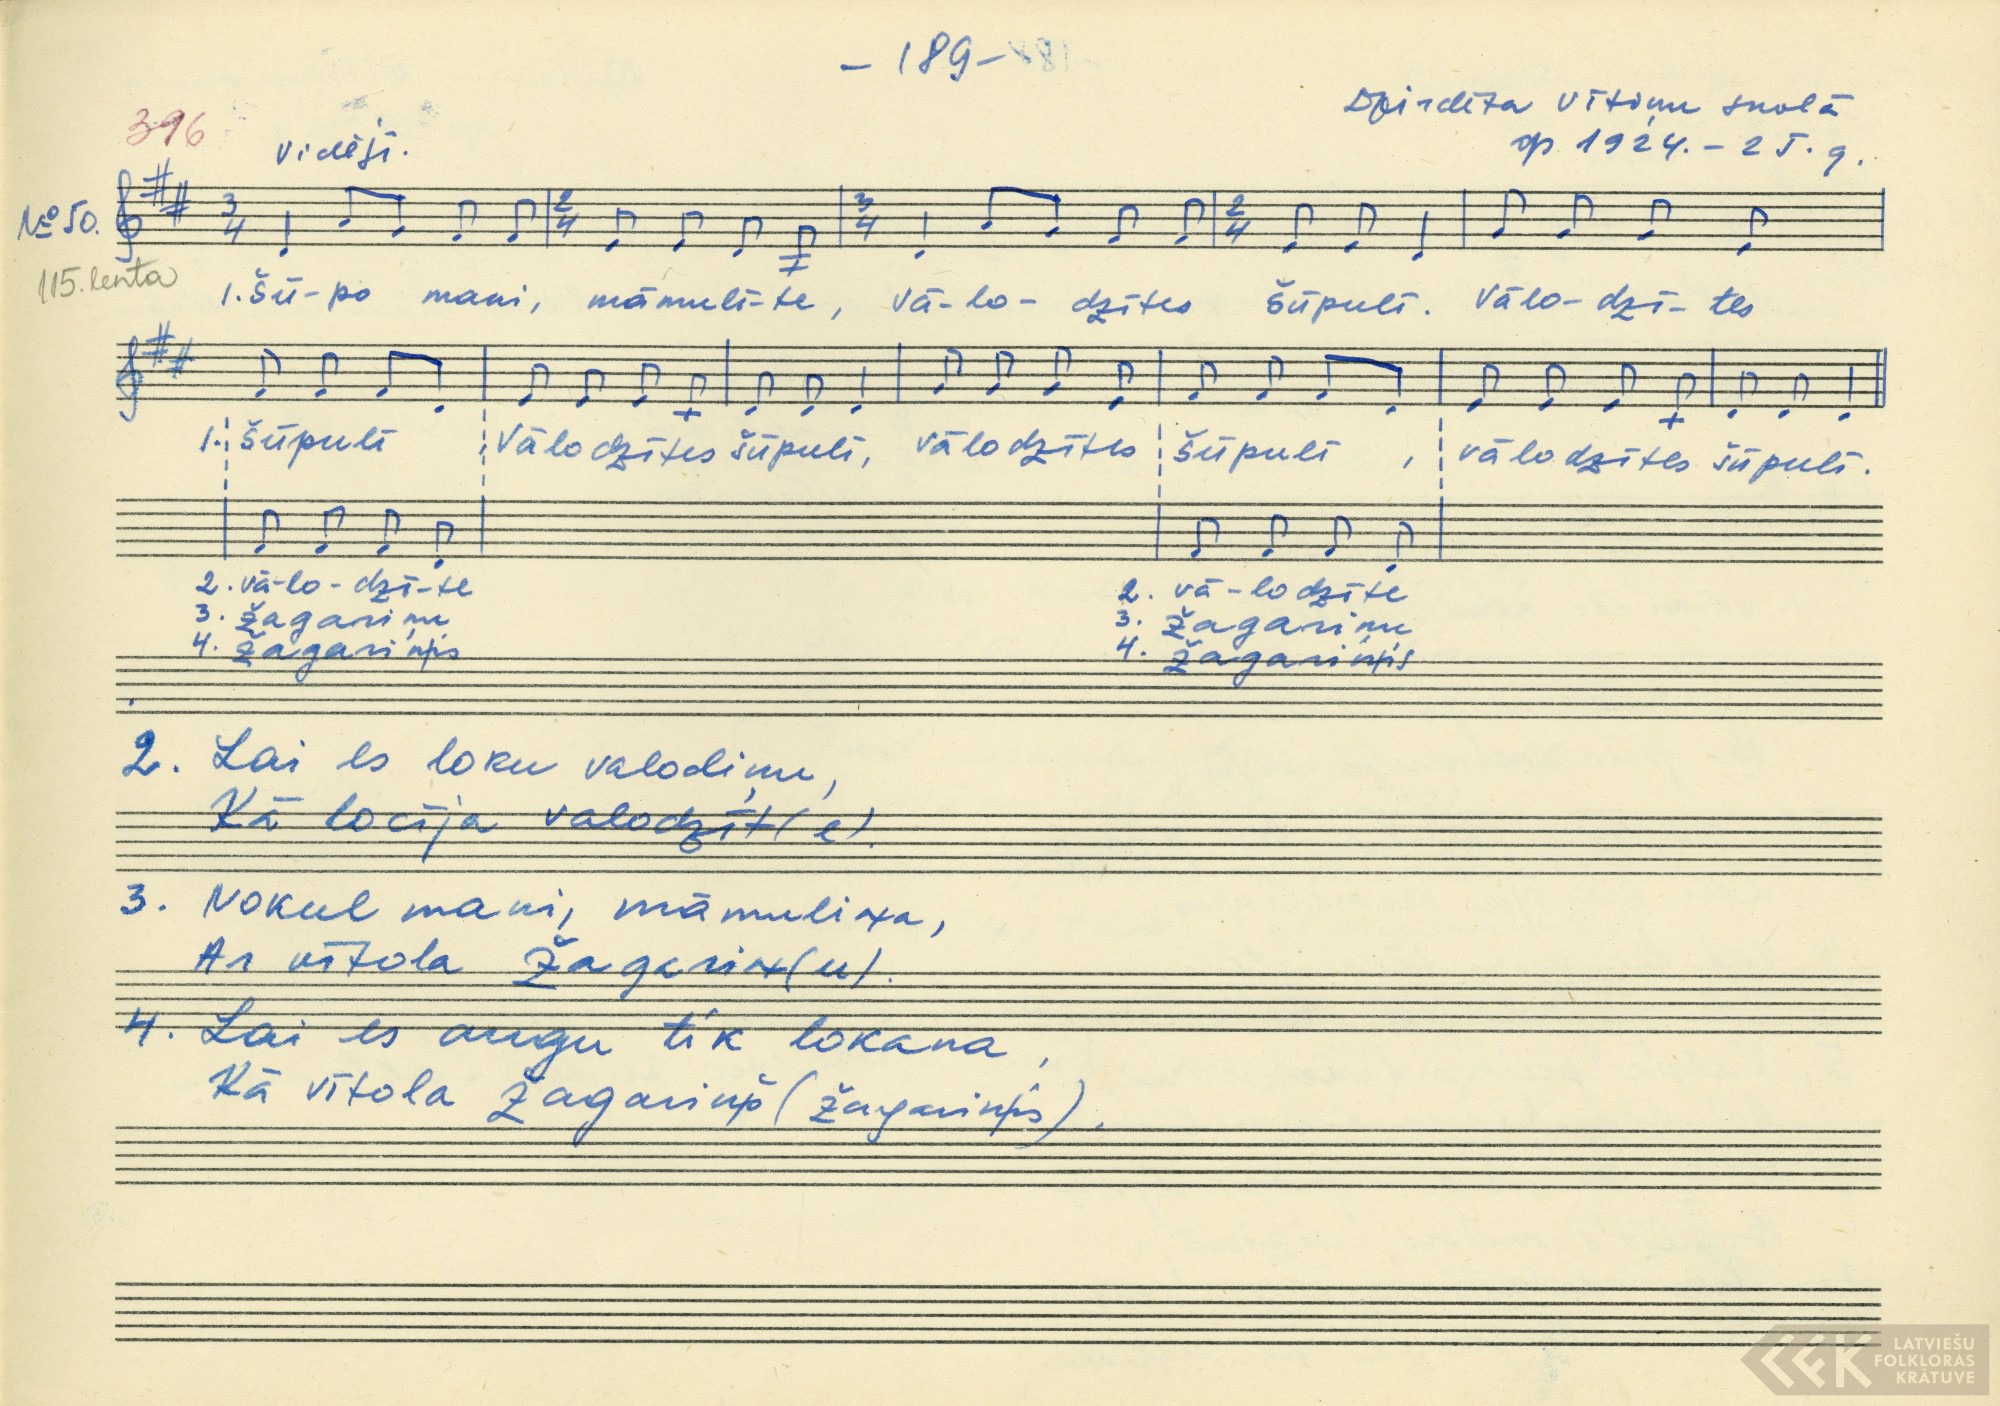 - 189 -
396
Dzirdēta Vītiņu skolā
ap 1924. - 25. g.
Vidēji.
№ 50.
3/4 2/4 3/4 2/4
115. lenta
1. Šū-po mani, māmulī-te, vā-lo-dzītes šūpulī. Vālo-dzī-tes
1. šūpulī Vālodzītes šūpulī, vālodzītes šūpulī, vālodzītes šūpulī.
2. vā-lo-dzī-te 2. vā-lodzīte
3. žagariņu 3. žagariņu
4. žagariņis 4. žagariņis
2. Lai es loku valodiņu,
Kā locīja valodzīt(e).
3. Nokul mani, māmuliņa,
Ar vītola žagariņ(u).
4. Lai es augu tik lokana,
Kā vītola žagariņš (žagariņis).
LATVIEŠU
FOLKLORAS
KRĀTUVE